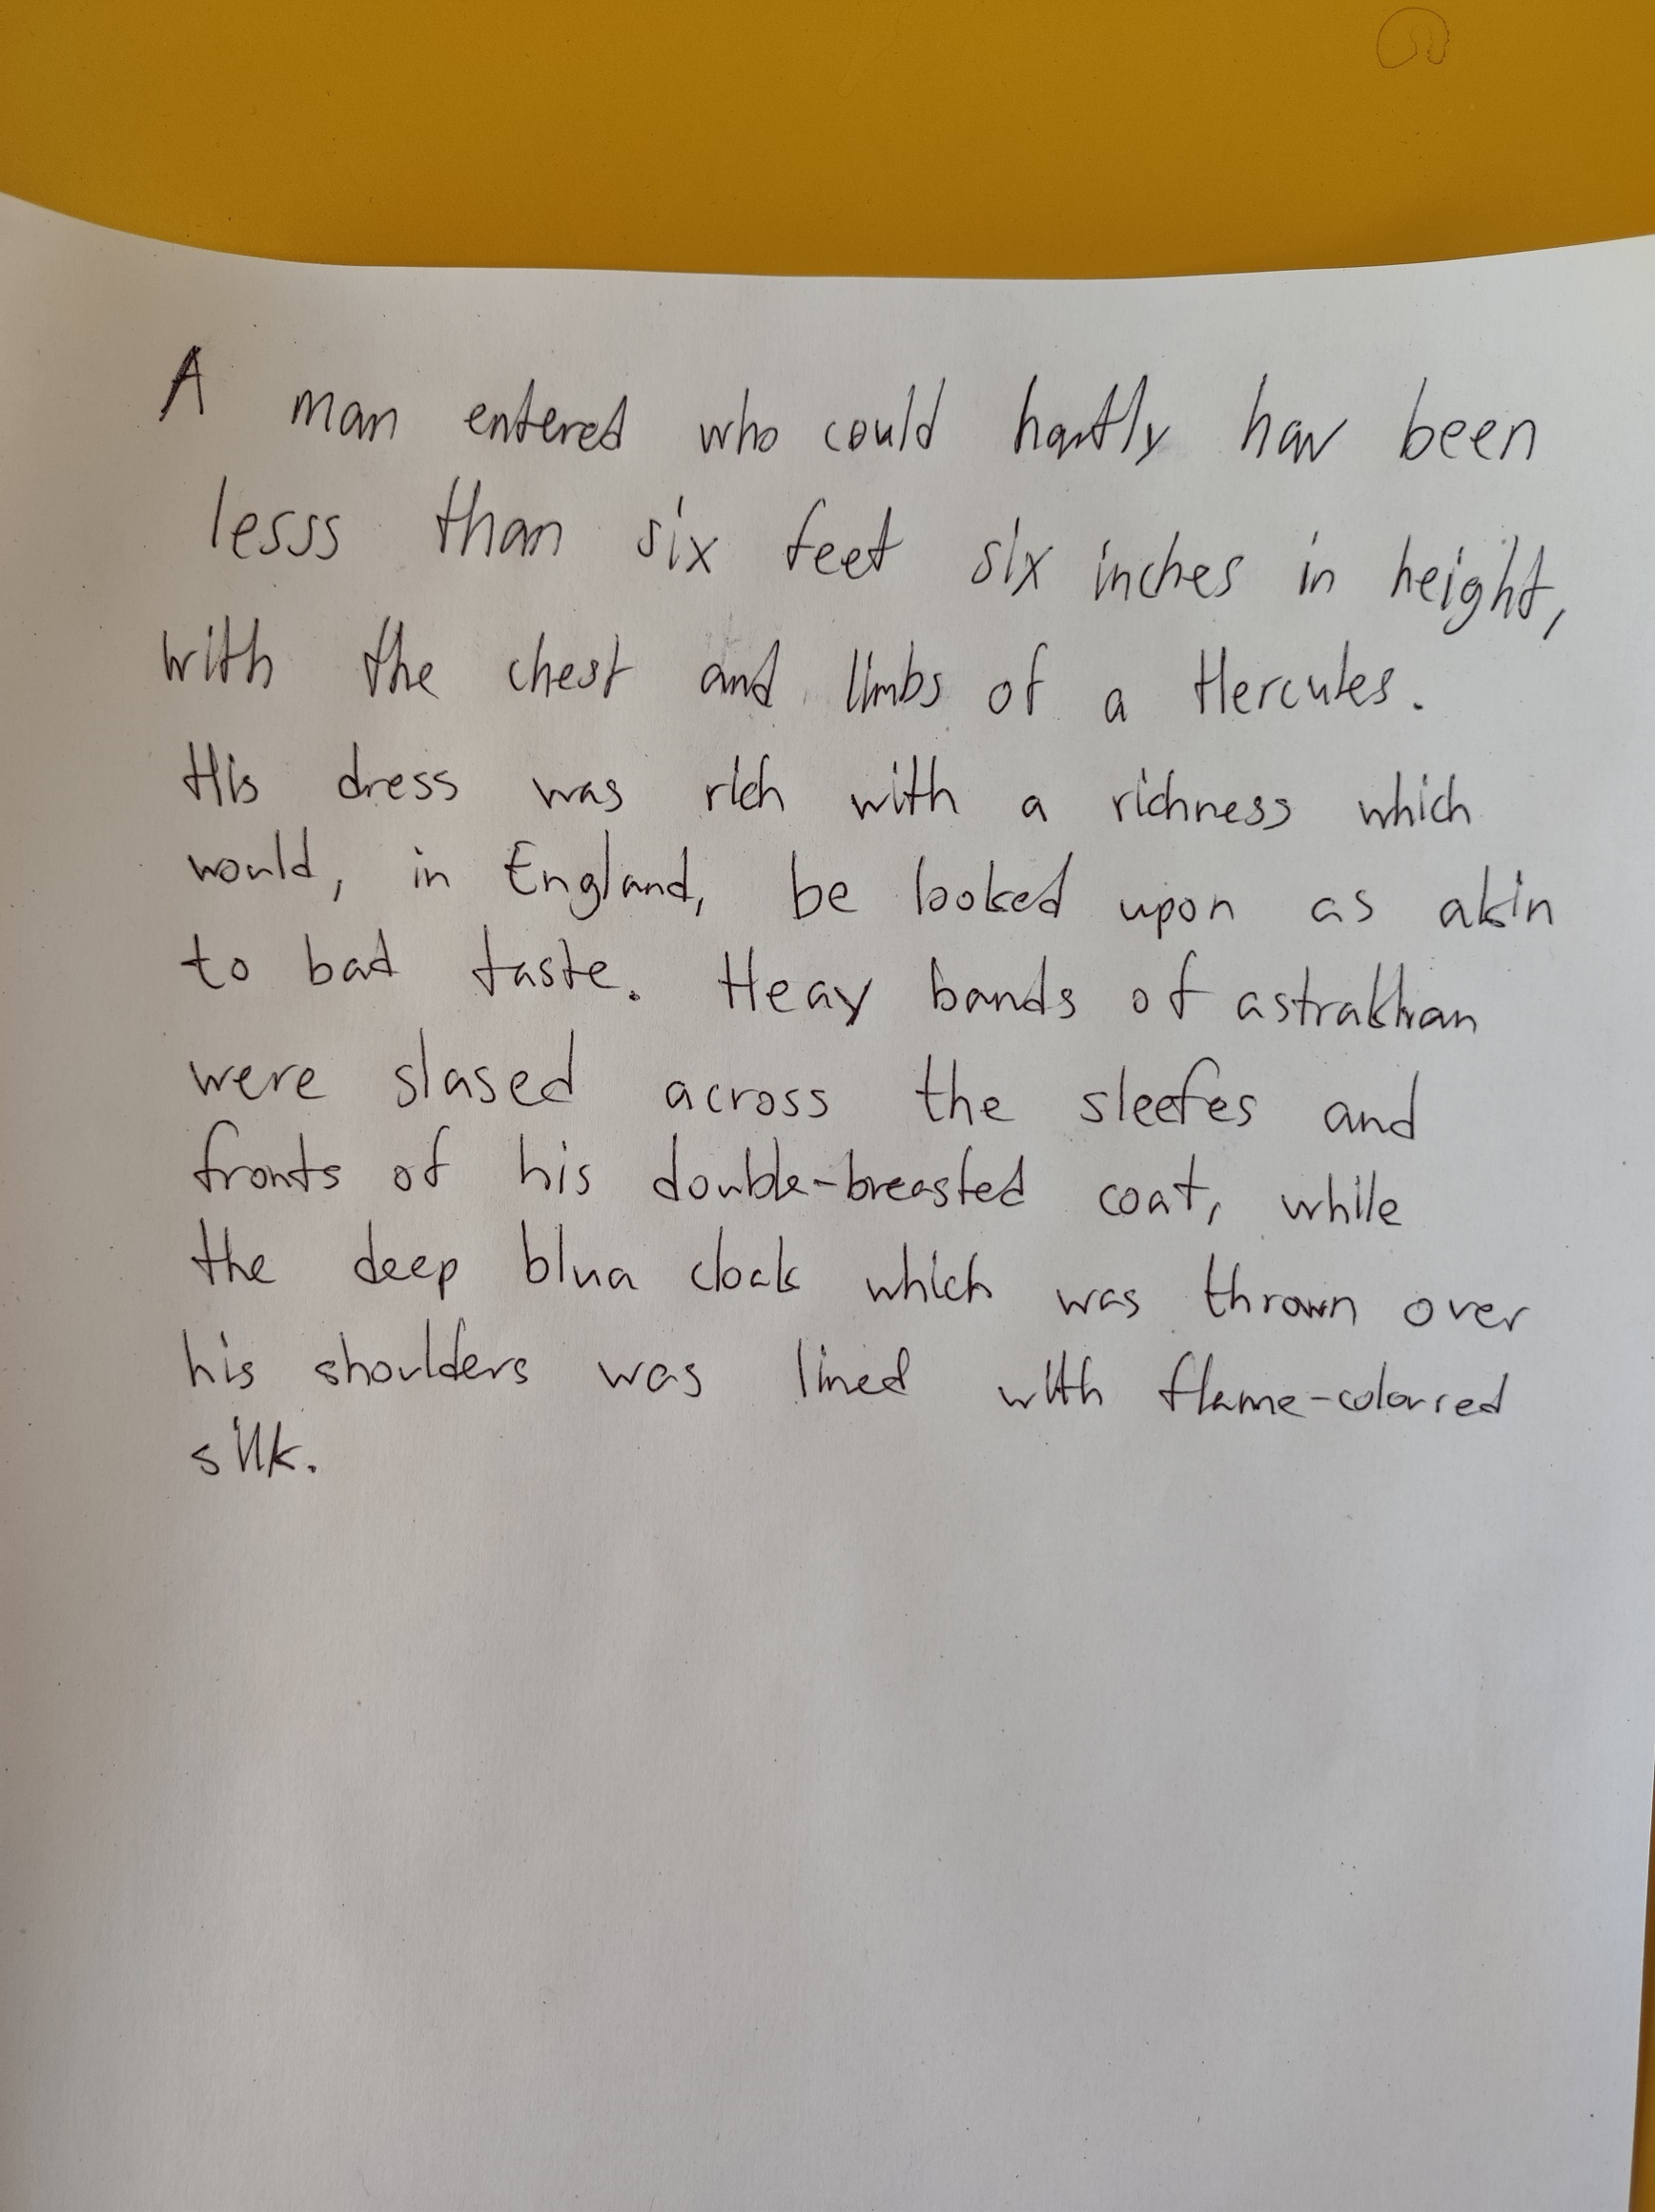 A man entered who could hartly hav been
lesss than six feet six inches in height,
with the chest and limbs of a Hercules.
His dress was rich with a richness which
would, in England, be looked upon as akin
to bad taste. Heay bands of astrakhan
were slased across the sleefes and
fronts of his double-breasted coat, while
the deep blua cloak which was thrown over
his shoulders was lined with flame-colorred
silk.